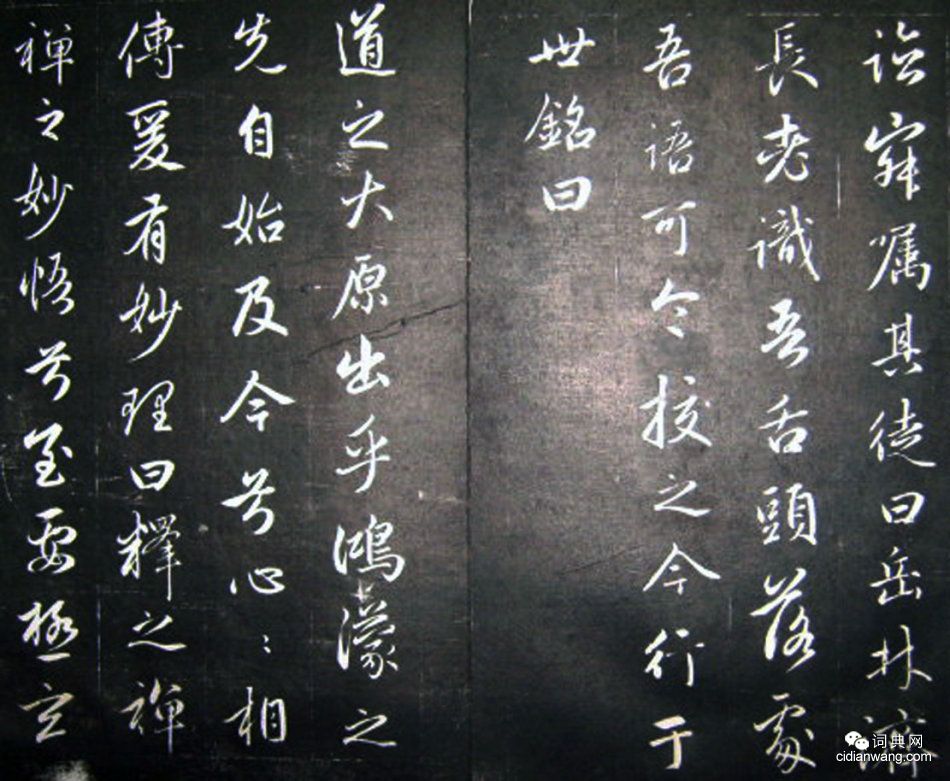 嘱其徒曰岳林濟
長老識吾舌頭落處
吾語可令挍之今行于
世銘曰
道之大原出乎鴻濛之
先自始及今兮心〻相
傳爰有妙理曰釋之禪
禪之妙悟兮至要極玄
词典网
cidianwang.com